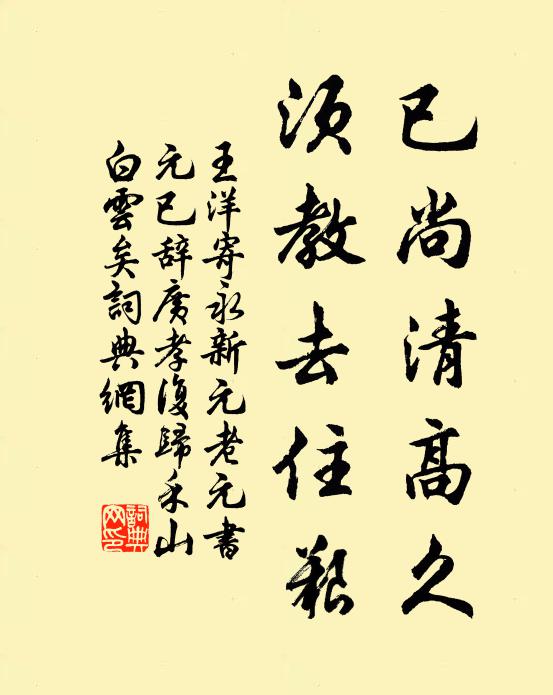 已尚清高久
須教去住艱
王洋寄永新元老元書
元已辞廣孝復歸禾山
白雲矣詞典網集
詞典网印